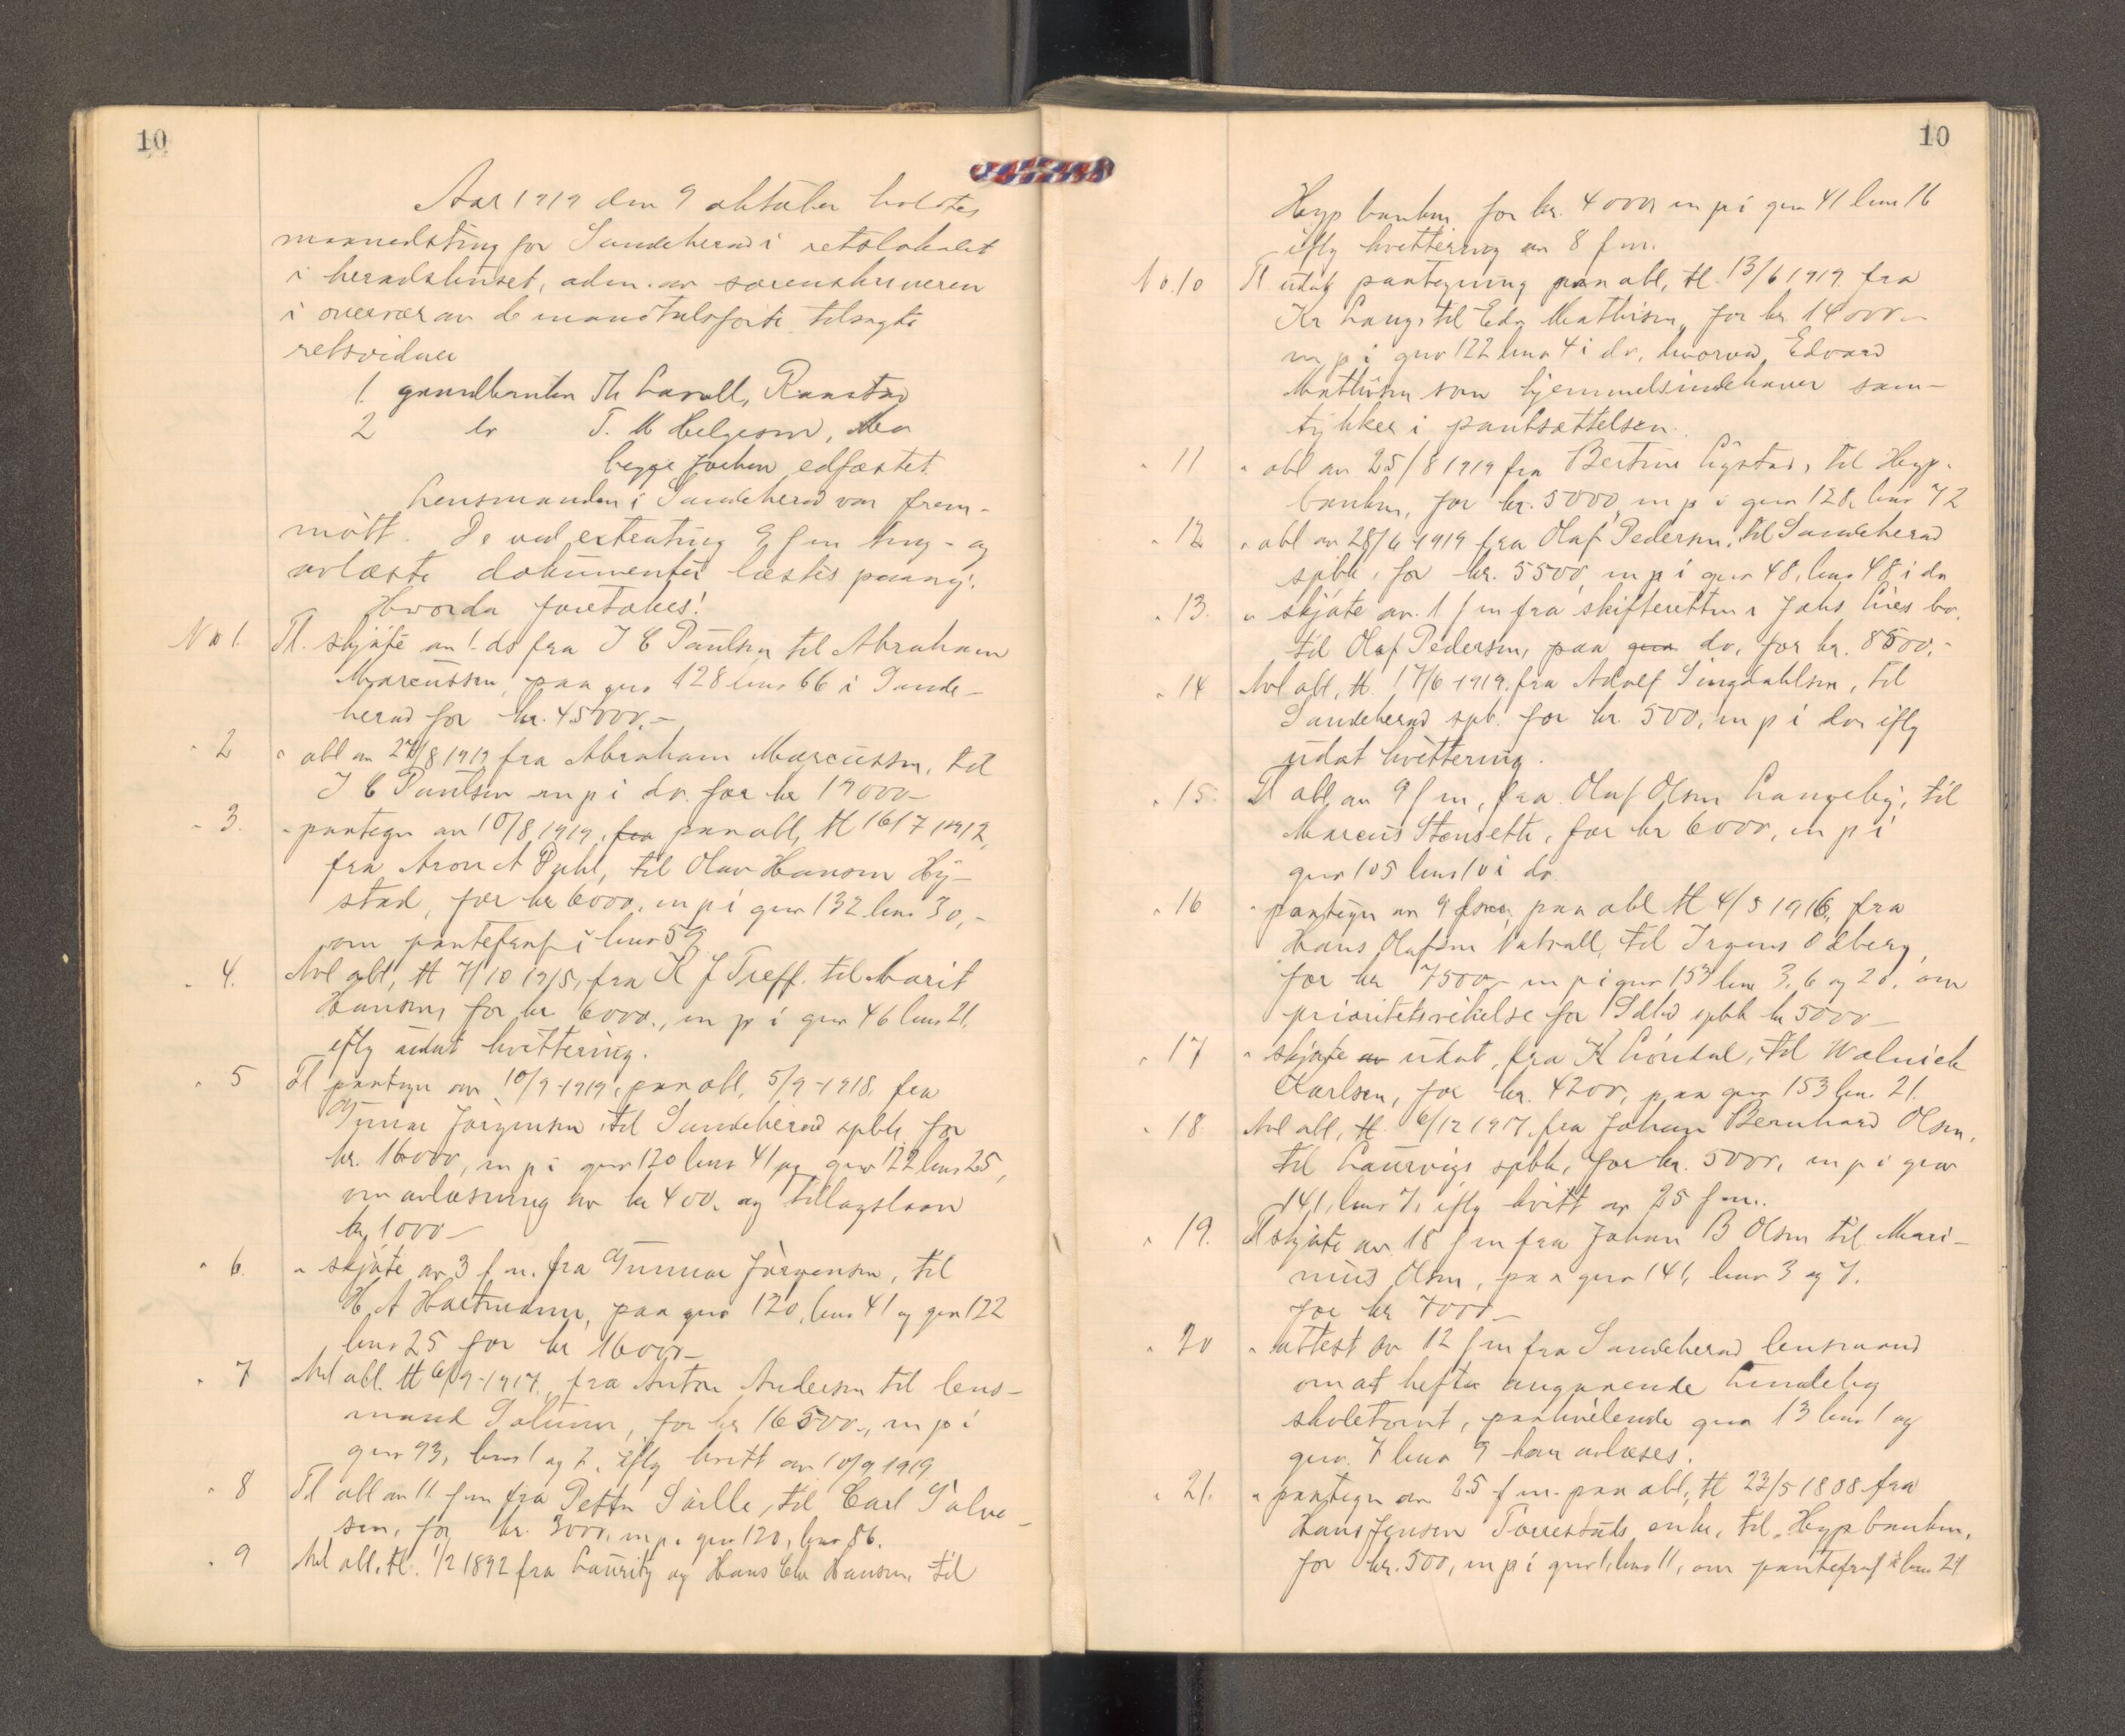 10
Aar 1919 den 9 oktober holdtes
maanedsting for Sandeherad i retslokalet
i heradshuset, adm. av sorenskriveren
i overvær av de mandtalsførte tilsagte
retsvidner
1. gaardbruker Th Lavoll, Raastad
2 do T. M Helgesen, Mo
begge forhen edfæstet.
Lensmanden i Sandeherad var frem-
møtt. De ved extrating 9 f m ting- og
avlæste dokumenter læstes paany.
Hvorda foretokes!
No 1. Tl. skjøte av 1. ds fra J C Paulsen til Abraham
Marcussen, paa gno 128 bno 66 i Sande-
herad for kr. 45000.-
" 2 " obl av 27/8 1919 fra Abraham Marcussen, til
J C Paulsen m p i do. for kr 19000-
" 3. " pantegn av 10/8 1919, fra paa obl, tl 16/7 1912,
fra Aron A Dahl, til Olav Hansen Hy-
stad, for kr 6000, m p i gno 132 bno 30,-
om pantefraf i bno 59
" 4. Avl obl, tl 7/10 1915, fra K J Treff. til Marit
Hansen, for kr 6000., m p i gno 46 bno 21.
iflg udat kvittering.
" 5 Tl pantegn av 10/9-1919, paa obl, 5/9-1918, fra
Gunnar Jørgensen, til Sandeherad spbk for
kr. 16000, m p i gno 120 bno 41 og gno 122 bno 25,
om avlæsning av kr 400. og tillægslaan
kr 1000-
" 6. " skjøte av 3 f m. fra Gunnar Jørgensen, til
H. A Hartmann, paa gno 120, bno 41 og gno 122
bno 25 for kr 16000-
" 7 Avl obl. tl 6/9-1917, fra Anton Andersen til lens-
mand, for kr 16500., m p i
gno 93, bno 1 og 2, iflg kvitt av 10/9 1919.
" 8 Tl obl av 11. f m fra Petter, til Carl Salve-
sen, for kr. 3000, m p i gno 120, bno 86.
" 9 Avl obl, tl. 1/2 1892 fra Lauritz og Hans Chr Hansen, til
10
Hyp banken for kr. 4000 m p i gno 41 bno 16
iflg kvittering av 8 f m.
No. 10 Tl udat pantegning paa obl, tl. 13/6 1919 fra
Kr Lange til Edv Mathisen, for kr 14000-
m p i gno 122 bno 4 i do, hvorved Edvard
Mathisen som hjemmelsindehaver sam-
tykker i pantsættelsen.
" 11 " obl av 25/8 1919 fra Bertine Lystad, til Hyp-
banken, for kr. 5000, m p i gno 128, bno 72
" 12 " obl av 28/6-1919 fra Olaf Pedersen, til Sandeherad
spbk, for kr. 5500, m p i gno 48, bno 48 i do
" 13. " skjøte av. 1 f m fra skifteretten i Jahs Lies bo.
til Olaf Pedersen, paa gno do, for kr. 8500.-
" 14 Avl obl, tl. 17/6-1919. fra Adolf Singdahlsen, til
Sandeherad spb. for kr. 500, m p i do iflg
udat kvittering.
" 15. Tl obl av 9 f m, fra Olaf Olsen Langeby, til
Marcus Stensett, for kr 6000, m p i
gno 105 bno 10 i do
" 16 " pantegn av 9 f m paa obl tl 4/5 1916, fra
Hans Olafsen Natvall, til Irgens Odberg,
for kr 7500,- m p i gno 153 bno 3, 6 og 20, om
prioritetsvikelse for Sdhd spbk kr 5000-
" 17 " skjøte av udat, fra K Liøndal, til Walnick
Karlsen, for kr. 4200, paa gno 153 bno 21.
" 18 Avl obl, tl. 6/12 1917, fra Johan Bernhard Olsen,
til Laurvigs spbk, for kr. 5000, m p i gno
141, bno 7, iflg kvitt av 25 f m.
" 19. Tl skjøte av 18 f m fra Johan B Olsen til Mari-
nius Olsen, paa gno 141, bno 3 og 7.
for kr 7000-
" 20 " attest av 12 f m fra Sandeherad lensmand
om at hefte angaaende Lindeby
skoletomt, paahvilende gno 13 bno 1 og
gno. 7 bno 9 kan avlæses.
" 21. " pantegn av 25 f m. paa obl, tl 23/5 1808 fra
Hans Jensen Torrestads enke, til Hyp banken,
for kr. 500, m p i gno 1, bno 11, om pantefraf i bno 21